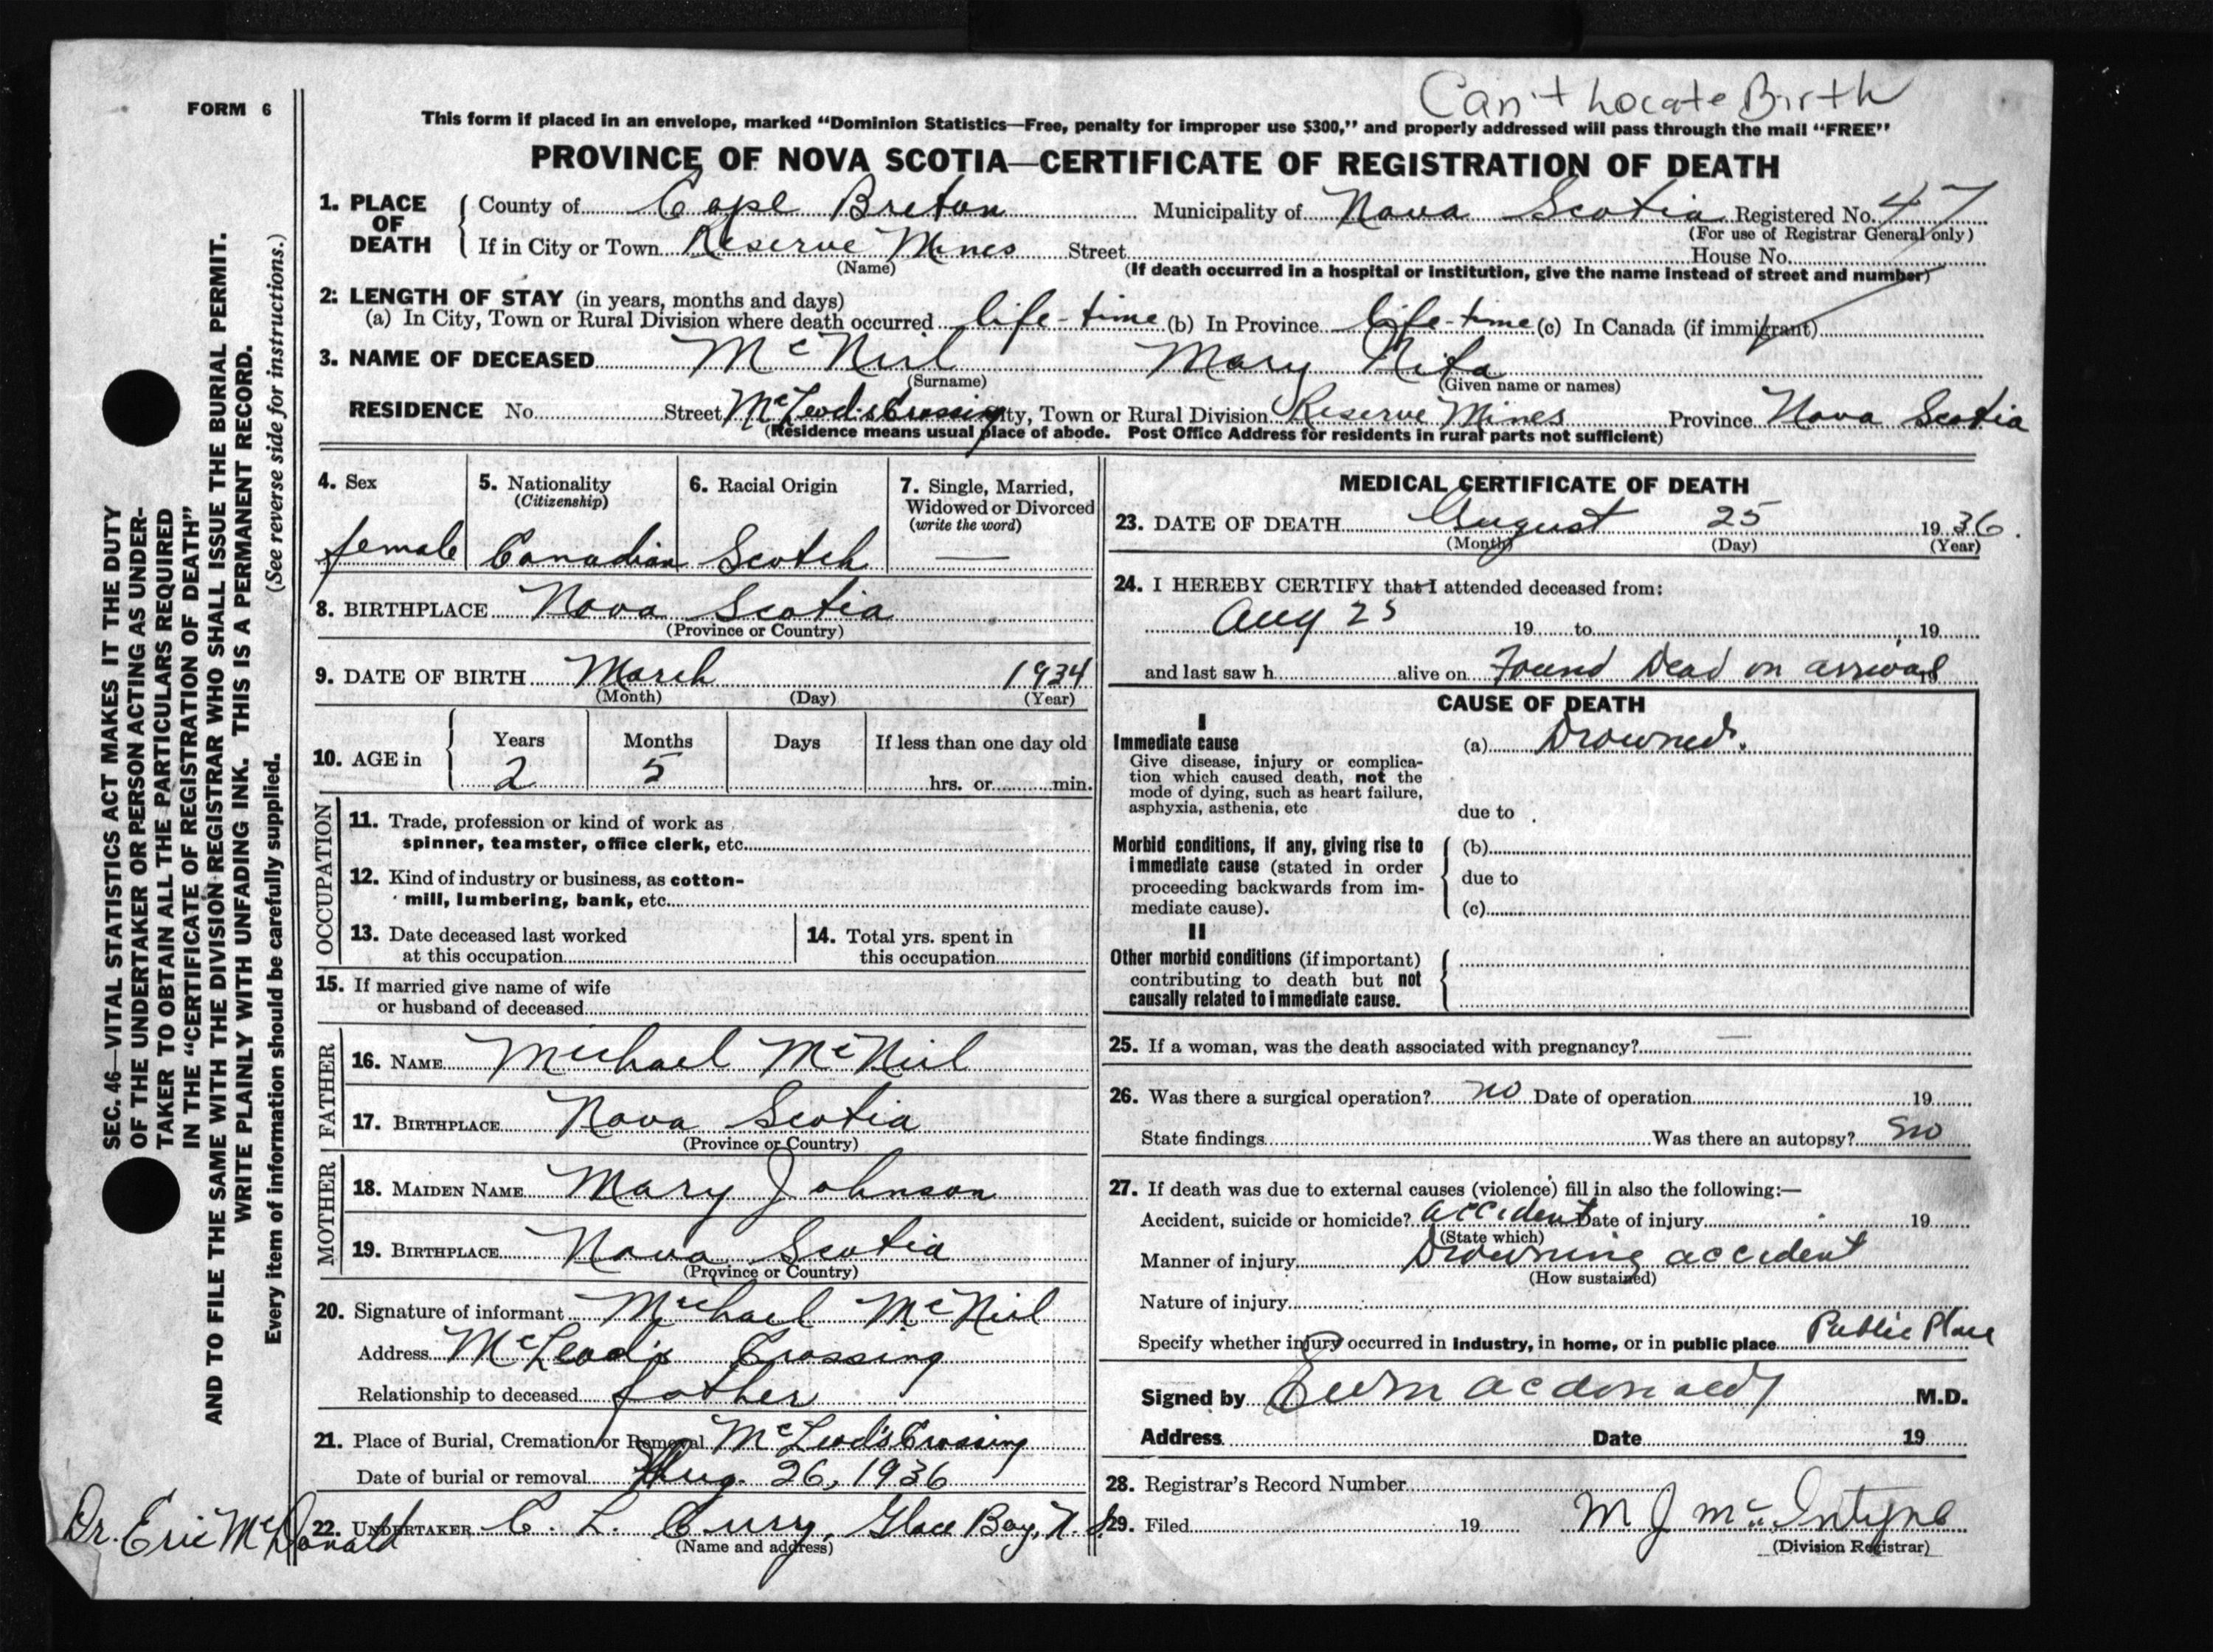 Can't Locate Birth
FORM 6
This form if placed in an envelope, marked "Dominion Statistics—Free, penalty for improper use $300," and properly addressed will pass through the mail "FREE"
PROVINCE OF NOVA SCOTIA—CERTIFICATE OF REGISTRATION OF DEATH
1. PLACE OF DEATH County of Cape Breton Municipality of Nova Scotia Registered No. 47
(For use of Registrar General only)
If in City or Town Reserve Mines Street House No.
(Name) (If death occurred in a hospital or institution, give the name instead of street and number)
2: LENGTH OF STAY (in years, months and days)
(a) In City, Town or Rural Division where death occurred life-time (b) In Province life-time (c) In Canada (if immigrant)
3. NAME OF DECEASED McNeil Mary Rita
(Surname) (Given name or names)
RESIDENCE No. Street McLeod's Crossing City, Town or Rural Division Reserve Mines Province Nova Scotia
(Residence means usual place of abode. Post Office Address for residents in rural parts not sufficient)
4. Sex 5. Nationality 6. Racial Origin 7. Single, Married,
(Citizenship) Widowed or Divorced
(write the word)
female Canadian Scotch —
8. BIRTHPLACE Nova Scotia
(Province or Country)
9. DATE OF BIRTH March 1934
(Month) (Day) (Year)
10. AGE in Years Months Days If less than one day old
2 5 hrs. or min.
OCCUPATION
11. Trade, profession or kind of work as
spinner, teamster, office clerk, etc.
12. Kind of industry or business, as cotton-
mill, lumbering, bank, etc.
13. Date deceased last worked 14. Total yrs. spent in
at this occupation this occupation
15. If married give name of wife
or husband of deceased
FATHER
16. NAME Michael McNeil
17. BIRTHPLACE Nova Scotia
(Province or Country)
MOTHER
18. MAIDEN NAME Mary Johnson
19. BIRTHPLACE Nova Scotia
(Province or Country)
20. Signature of informant Michael McNeil
Address McLeod's Crossing
Relationship to deceased father
21. Place of Burial, Cremation or Removal McLeod's Crossing
Date of burial or removal Aug. 26, 1936
22. UNDERTAKER C. L. Curry, Glace Bay, N.S.
(Name and address)
Dr. Eric McDonald
MEDICAL CERTIFICATE OF DEATH
23. DATE OF DEATH August 25 1936.
(Month) (Day) (Year)
24. I HEREBY CERTIFY that I attended deceased from:
Aug 25 19 to 19
and last saw h alive on Found Dead on arrival 19
CAUSE OF DEATH
I
Immediate cause (a) Drowned.
Give disease, injury or complica-
tion which caused death, not the
mode of dying, such as heart failure,
asphyxia, asthenia, etc due to
Morbid conditions, if any, giving rise to (b)
immediate cause (stated in order
proceeding backwards from im- due to
mediate cause). (c)
II
Other morbid conditions (if important)
contributing to death but not
causally related to immediate cause.
25. If a woman, was the death associated with pregnancy? —
26. Was there a surgical operation? no Date of operation 19
State findings Was there an autopsy? no
27. If death was due to external causes (violence) fill in also the following:—
Accident, suicide or homicide? accident Date of injury 19
(State which)
Manner of injury Drowning accident
(How sustained)
Nature of injury
Specify whether injury occurred in industry, in home, or in public place Public Place
Signed by M.D.
Address Date 19
28. Registrar's Record Number
29. Filed 19 M J McIntyre
(Division Registrar)
SEC. 46—VITAL STATISTICS ACT MAKES IT THE DUTY
OF THE UNDERTAKER OR PERSON ACTING AS UNDER-
TAKER TO OBTAIN ALL THE PARTICULARS REQUIRED
IN THE "CERTIFICATE OF REGISTRATION OF DEATH"
AND TO FILE THE SAME WITH THE DIVISION REGISTRAR WHO SHALL ISSUE THE BURIAL PERMIT.
WRITE PLAINLY WITH UNFADING INK. THIS IS A PERMANENT RECORD.
Every item of information should be carefully supplied. (See reverse side for instructions.)